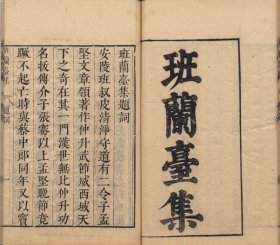 班蘭臺集
班蘭臺集題詞
安陵班叔皮清淨守道有二令子孟
堅文章領著作仲升武節威西域天
下之奇在其一門漢世無比仲升功
名拔傅介子張騫以上孟堅晚節竟
躓不起亡時與蔡中郎同年又以竇